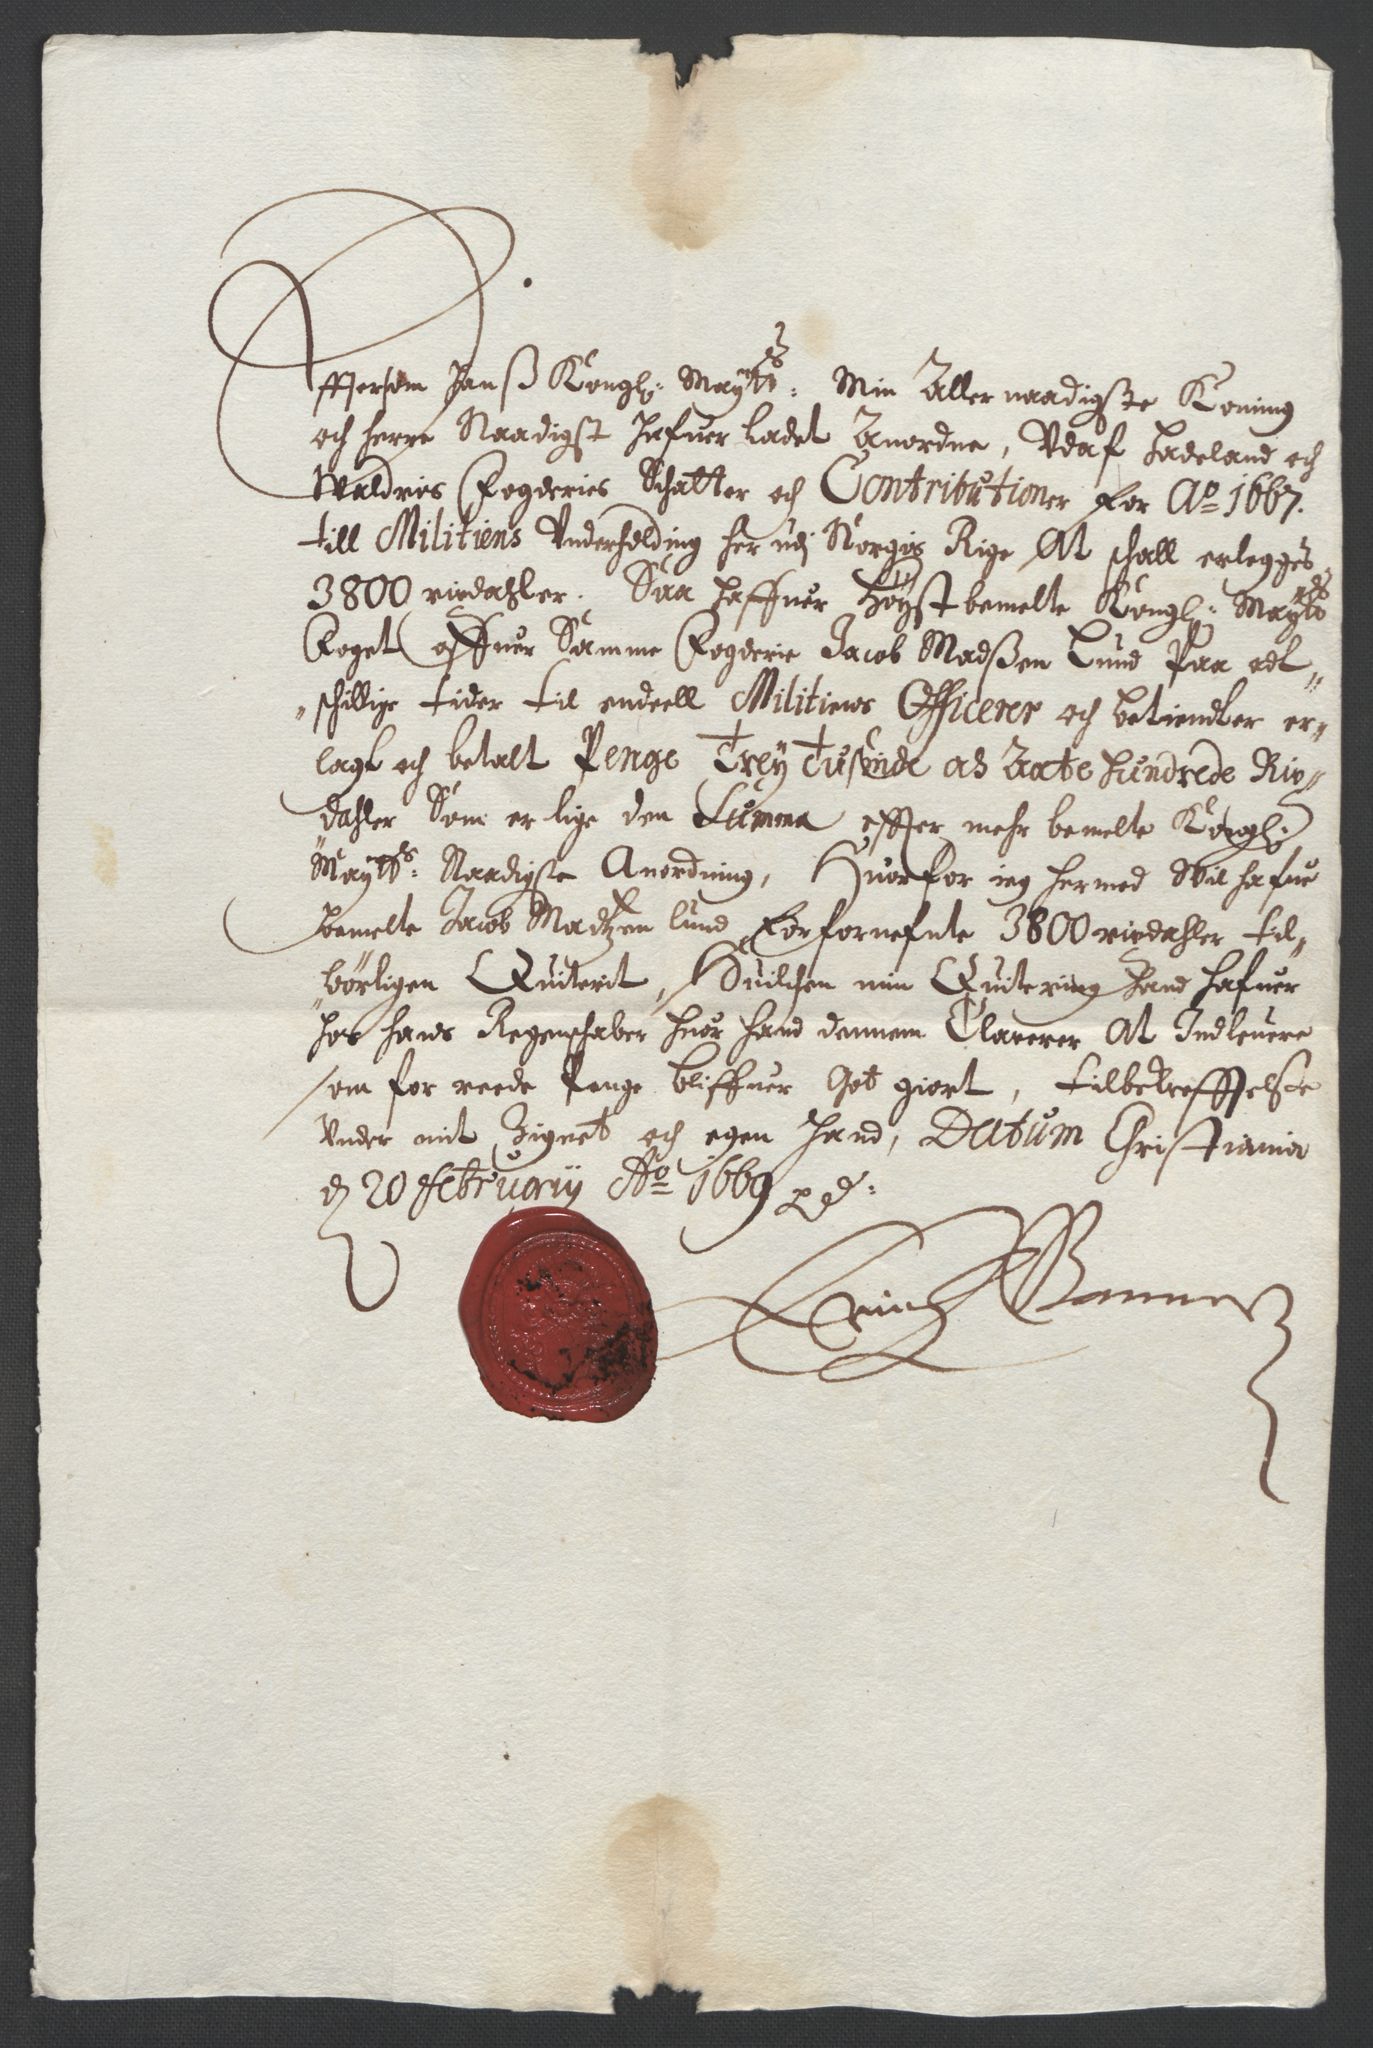 Effersom Hanß Kongl: Maÿtts: Min Aller naadigste Koning
och herre Naadigst hafuer Ladet Anordne, Vdaf Hadeland och
Waldris Fogderies Schatter och Contributioner for Ao 1667.
till Militiens Vnderholding her udj Norgis Rige At schall erlegges
3800 rixdahler. Saa haffuer höÿst bemelte Kongl: Maÿtts
Foget offuer Samme Fogderie Jacob Madßen Lund Paa adt„
„schillige tider til endeell Militiens Officerer och betiendter er„
lagt och betalt Penge Treÿ Tusinde och Aatte hundrede Rix„
dahler Som er lige den Summa effter mehr bemelte Kongl:
Maÿtts: Naadigste Anordning, Huorfor ieg hermed Vil hafue
bemelte Jacob Madtzen Lund, for fornefnte 3800 rixdahler til„
„börligen Quiterit, Huilchen min Quitering hand hafuer
hos hans Regenschaber huor hand dennem Clarerer At Indleuere
som for reede Penge bliffuer Got giort, til bekrefftelse
Vnder mit Zignet och egen hand, Datum Christiania
d 20 februarÿ Ao 1669